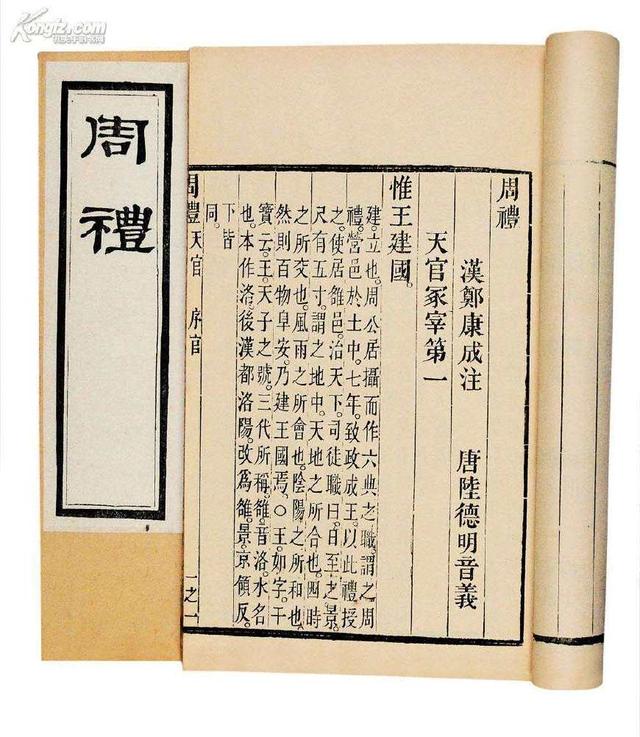 Kongfz.com
孔夫子旧书网
周禮
周禮
漢鄭康成注　唐陸德明音義
天官冢宰第一
惟王建國。
建。立也。周公居攝而作六典之職。謂之周
禮。營邑於土中。七年。致政成王。以此禮授
之。使居雒邑。治天下。司徒職曰。日至之景。
尺有五寸。謂之地中。天地之所合也。四時
之所交也。風雨之所會也。陰陽之所和也。
然則百物阜安。乃建王國焉。〇王。如字。干
寶云。王。天子之號。三代所稱。雒音洛。水名
也。本作洛。後漢都洛陽。改爲雒。景。京領反。
下皆
同。
周禮　天官　序官　一之一